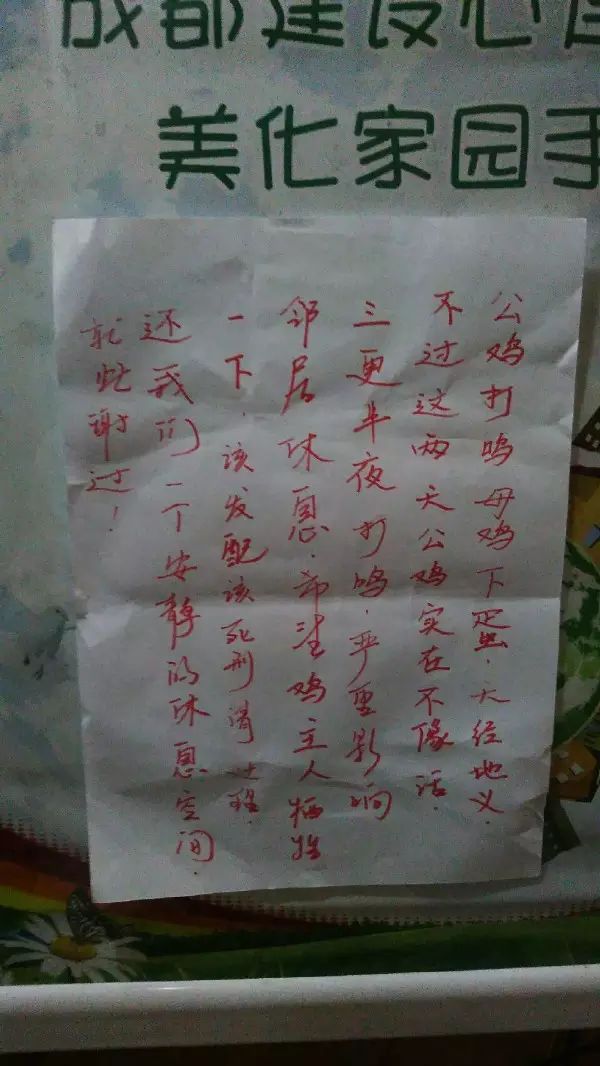 成都建设心
美化家园手
公鸡打鸣母鸡下蛋.天经地义.
不过这两天公鸡实在不像话.
三更半夜打鸣.严重影响
邻居休息.希望鸡主人牺牲
一下.该发配该死刑请
还我们一个安静的休息空间.
就此谢过!